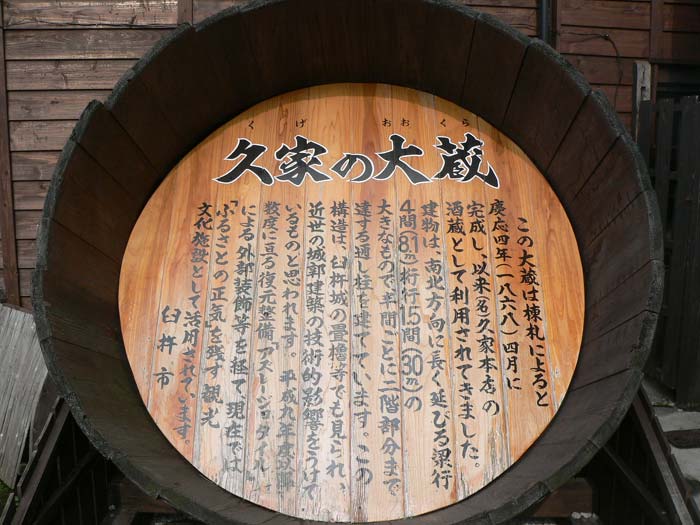 くげ おおくら
久家の大蔵
この大蔵は棟札によると
慶応四年(一八六八)四月に
完成し、以来(名)久家本店の
酒蔵として利用されてきました。
建物は、南北方向に長く延びる梁行
4間8.1m桁行15間30mの
大きなもので半間ごとに二階部分まで
達する通し柱を建てています。この
構造は、臼杵城の畳櫓等でも見られ、
近世の城郭建築の技術的影響をうけて
いるものと思われます。平成九年度以降
数度に亘る復元整備「アズレージョタイル」
による外部装飾等を経て、現在では
「ふるさとの正気」を残す観光
文化施設として活用されています。
臼杵市